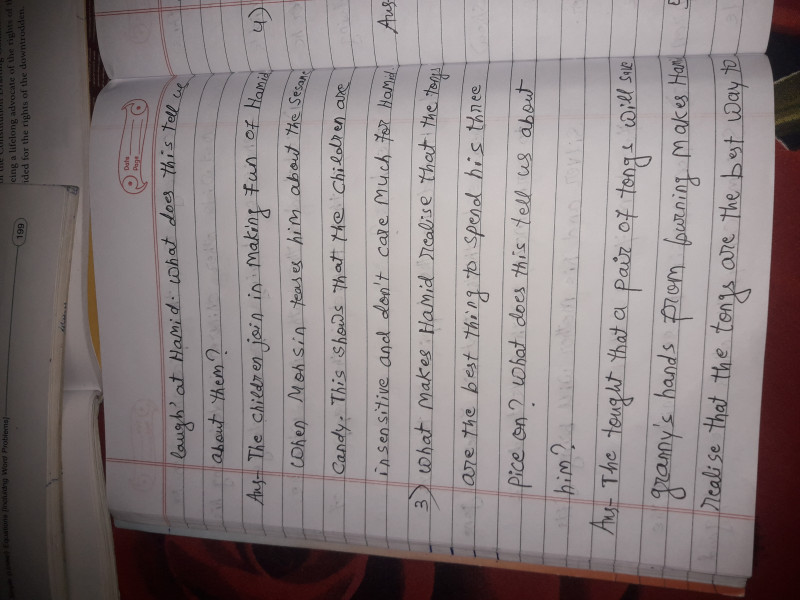 Date
Page
laugh' at Hamid. what does this tell us
about them?
Ans- The children join in making fun of Hamid
when Mohsin teases him about the sesame
candy. This shows that the children are
insensitive and don't care much for Hamid.
3) what makes Hamid realise that the tongs
are the best thing to spend his three
pice on? what does this tell us about
him?
Ans- The tought that a pair of tongs will save
granny's hands from burning makes Ham
realise that the tongs are the best way to
4)
Ans
199
eing a lifelong advocate of the rights of
ided for the rights of the downtrodden.
Equations (Including Word Problems)